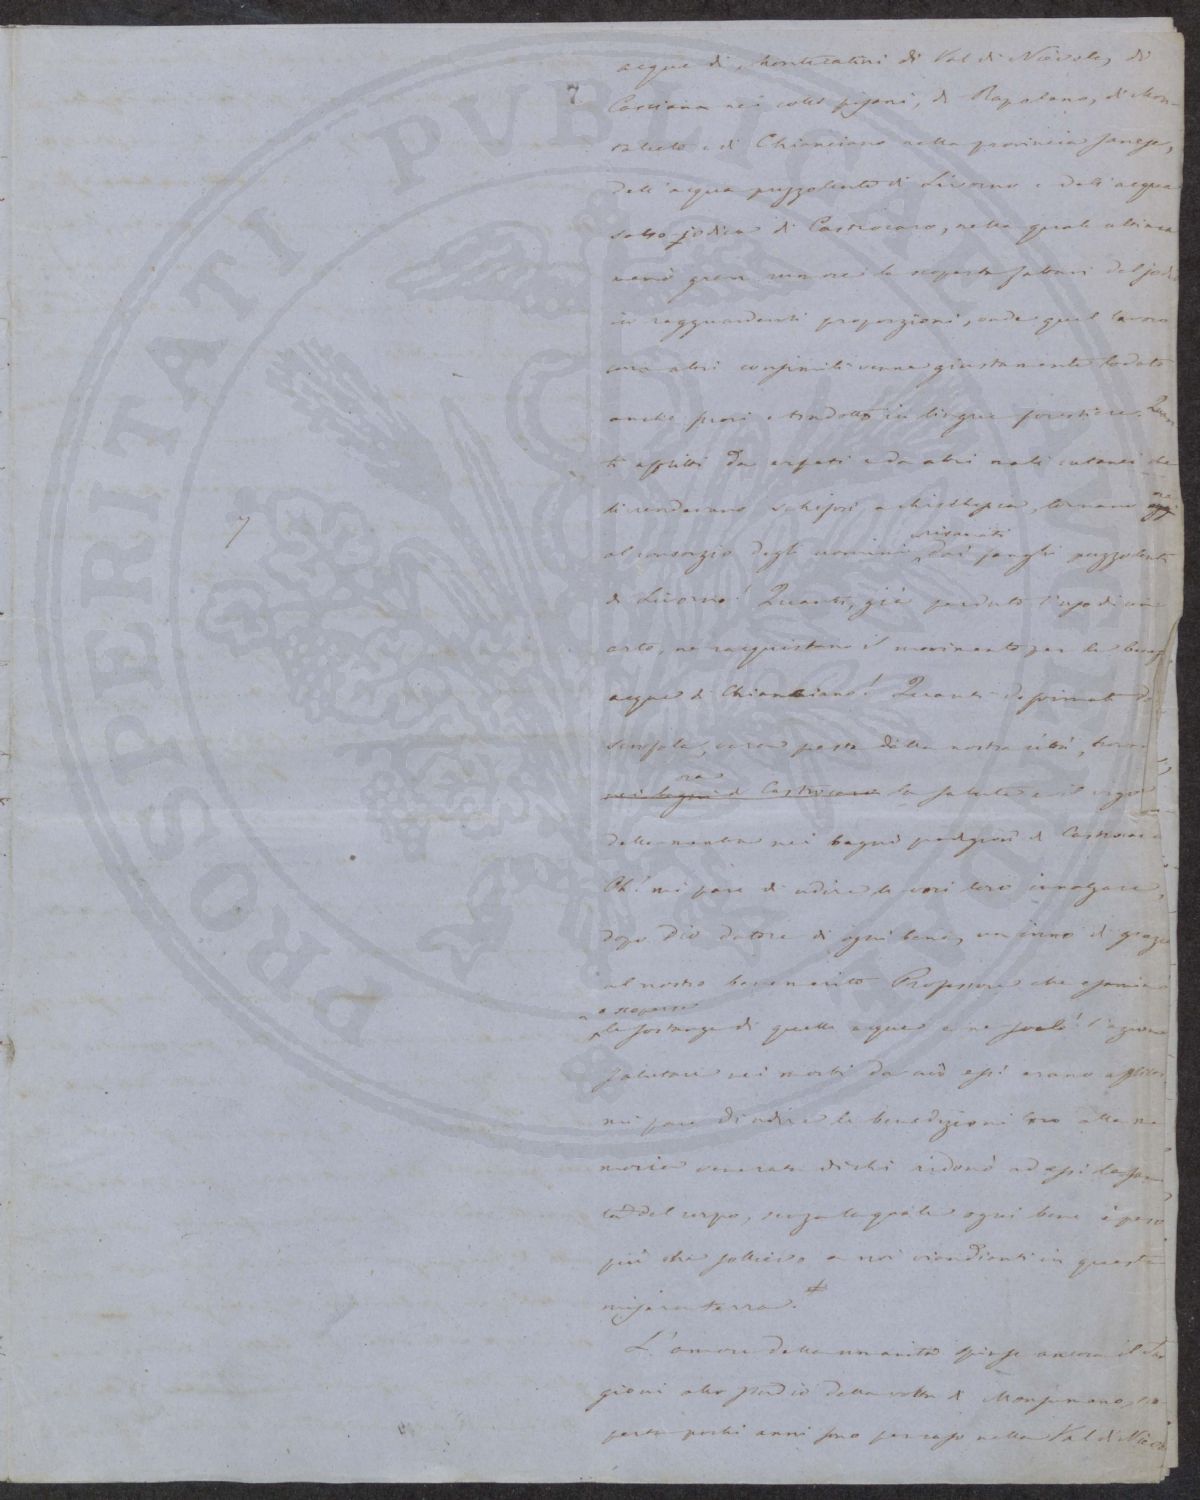 7
acque di Montecatini di Val di Nievole, di
Casciana nei colli pisani, di Rapolano, di Mon-
talceto e di Chianciano nella provincia sanese,
dell'acqua puzzolente di Livorno e dell'acqua
salso-jodica di Castrocaro, nella quale
menò gran rumore la scoperta fattavi del jodio
in ragguardevoli proporzioni, onde quel lavoro
con altri consimili venne giustamente lodato
anche fuori e tradotto in lingue forestiere. Quan-
ti afflitti da erpeti e da altri mali cutanei che
li rendevano schifosi a chicchessia, tornano
al consorzio degli uomini risanati dai fanghi puzzolenti
di Livorno! Quanti, già perduto l'uso di un
arto, ne racquistano il movimento per le
acque di Chianciano! Quanti deformati da
scrofola, peste della nostra età,
ora nei bagni di Castrocaro la salute e il vigor
della mente nei bagni prodigiosi di Castrocaro
Oh! mi pare di udire le voci loro innalzare,
dopo Dio datore di ogni bene, un inno di grazie
al nostro benemerito Professore che esaminò
e scoperse
le sostanze di quelle acque e ne svelò l'azione
salutare nei morbi da cui essi erano afflitti
mi pare di udire le benedizioni loro alla me-
moria venerata di chi ridonò ad essi la sani-
tà del corpo, senza la quale ogni bene è peso
più che sollievo a noi viandanti in questa
misera terra.
L'amore della umanità spinse ancora il Tar-
gioni allo studio della volta di Monsummano, sco-
perta pochi anni sono per caso nella Val di Nievo
7